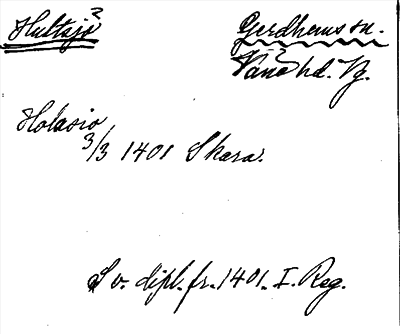 Hultsjö² Gerdhems sn.
Väne² hd. Vg.
Holasio
3/3 1401 Skara.
Sv. dipl. fr. 1401. I. Reg.